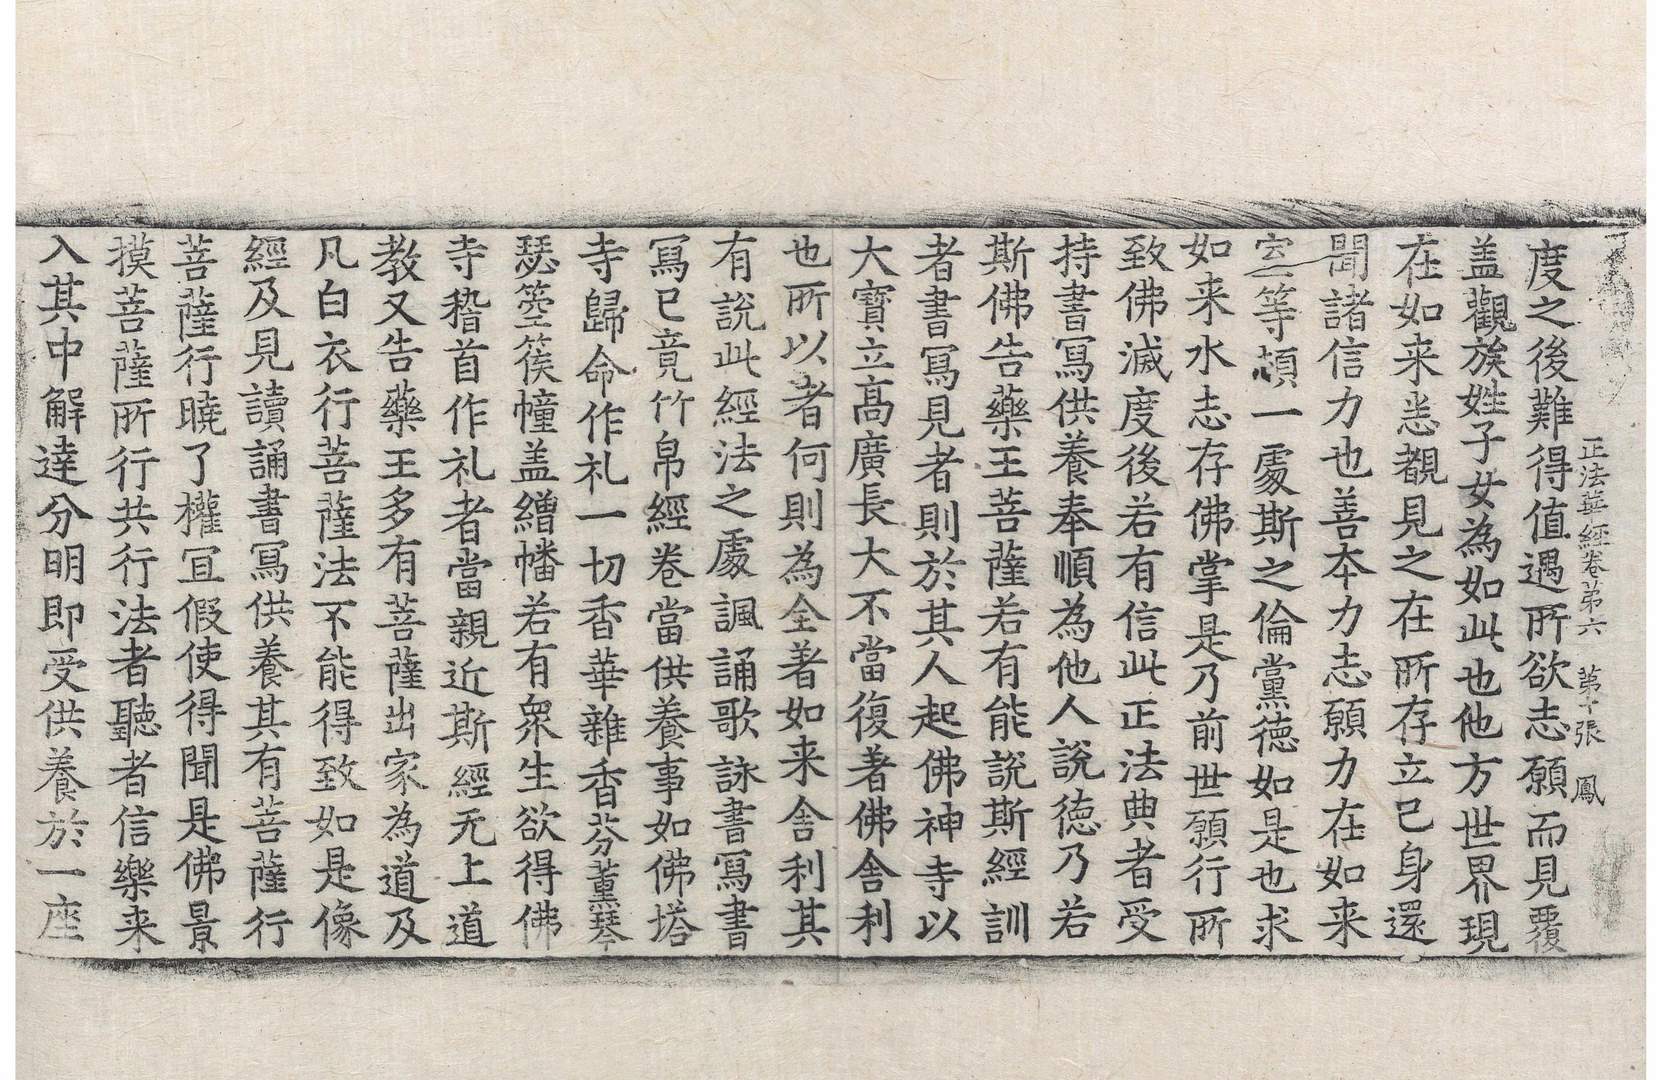 正法華經卷第六 第十張 鳳
度之後難得值遇所欲志願而見覆
盖觀族姓子女為如此也他方世界現
在如来恙覩見之在所存立已身還
聞諸信力也善夲力志願力在如来
室等頓一處斯之倫黨徳如是也求
如来水志存佛掌是乃前世願行所
致佛滅度後若有信此正法典者受
持書冩供養奉順為他人說徳乃若
斯佛告藥王菩薩若有能說斯經訓
者書冩見者則於其人起佛神寺以
大寶立髙廣長大不當復著佛舎利
也所以者何則為全著如来舎利其
有說此經法之處諷誦歌詠書冩書
冩已竟竹帛經卷當供養事如佛塔
寺歸命作礼一切香華雜香芬薰琴
瑟箜篌幢盖繒幡若有衆生欲得佛
寺稽首作礼者當親近斯經无上道
教又告藥王多有菩薩出家為道及
凡白衣行菩薩法不能得致如是像
經及見讀誦書冩供養其有菩薩行
菩薩行曉了權冝假使得聞是佛景
摸菩薩所行共行法者聽者信樂来
入其中解達分明即受供養於一座